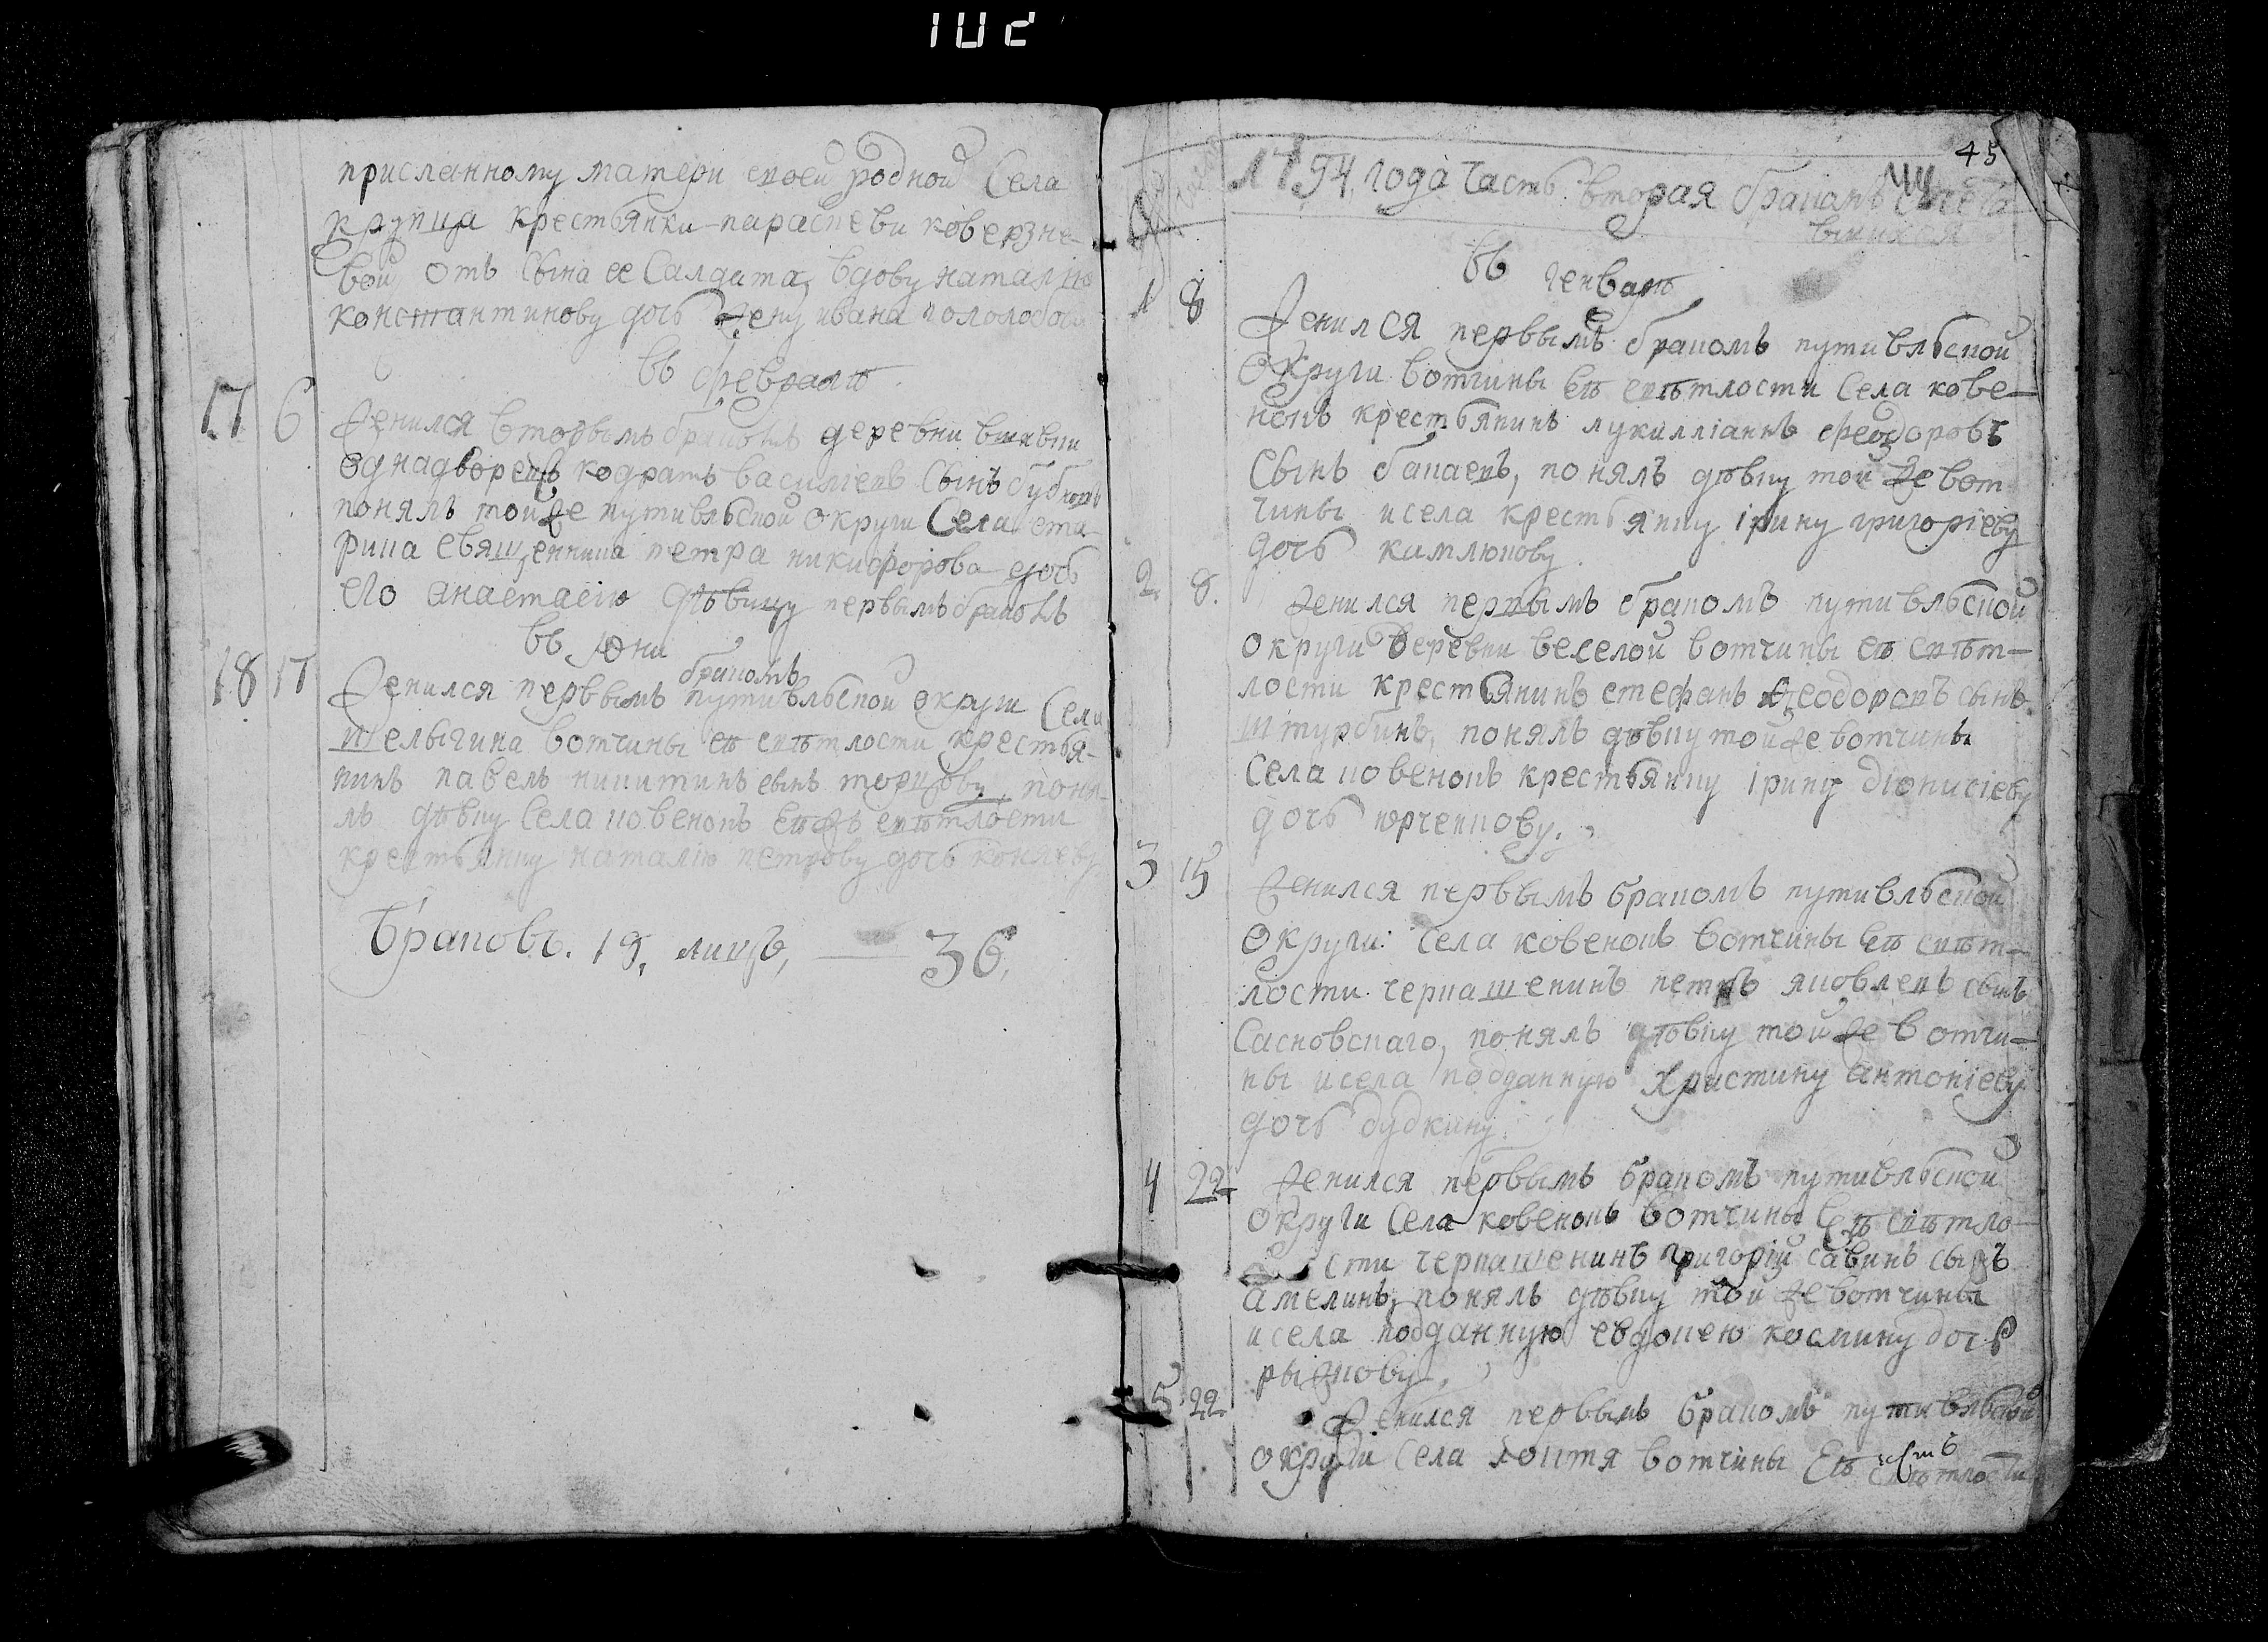 102
присланному матери своей родной Села
крупца крестьянки парасцеви коверзне-
вой отъ сына ее Салдата, вдову наталию
константинову дочь жену ивана гололобова
въ февралѣ
17 6 Женился вторымъ бракомъ деревни
однадворецъ кодратъ василиевъ Сынъ
понялъ той же путивльской округи Села ста-
рица священника петра никифорова дочь
его анастасию дѣвицу первымъ бракомъ
въ июни
бракомъ
18 17 Женился первымъ путивльской округи Села
шелыгина вотчины ея свѣтлости крестья-
нинъ павелъ никитинъ сынъ поня-
лъ дѣвку Села ковенокъ ея жъ свѣтлости
крестьянку наталию петрову дочь коняеву
Браковъ. 19, лицъ, — 36,
45
1794 года Часть вторая бракомъ
въ генварѣ
1 8 Женился первымъ бракомъ путивльской
Округи вотчины ея свѣтлости Села кове-
нокъ крестьянинъ лукиллианъ феодоровъ
Сынъ бакаевъ, понялъ дѣвку той же вот
чины и села крестьянку ирину григоріеву
дочь камлюкову
2. 8. Женился первымъ бракомъ путивльской
округи деревни веселой вотчины ея свѣт-
лости крестьянинъ стефанъ феодоровъ сынъ
штурбинъ, понялъ дѣвку той же вотчины
Села ковенокъ крестьянку ірину діонисіеву
дочь юрченкову.
3 15 Женился первымъ бракомъ путивльской
Округи Села ковенокъ вотчины ея свѣт-
лости черкашенинъ петръ яковлевъ сынъ
Сасновскаго, понялъ дѣвку той же вотчи-
ны и села подданную Христину антоніеву
дочь будкину.
4 22 Женился первымъ бракомъ путивльской
Округи Села ковенокъ вотчины Ея свѣтло-
сти черкашенинъ григорій савинъ сынъ
амелинъ, понялъ дѣвку той же вотчины
и села подданную евдокею космину дочь
рыжкову.
5 22 Женился первымъ бракомъ путивльской
округи Села вотчины Ея свѣтлости